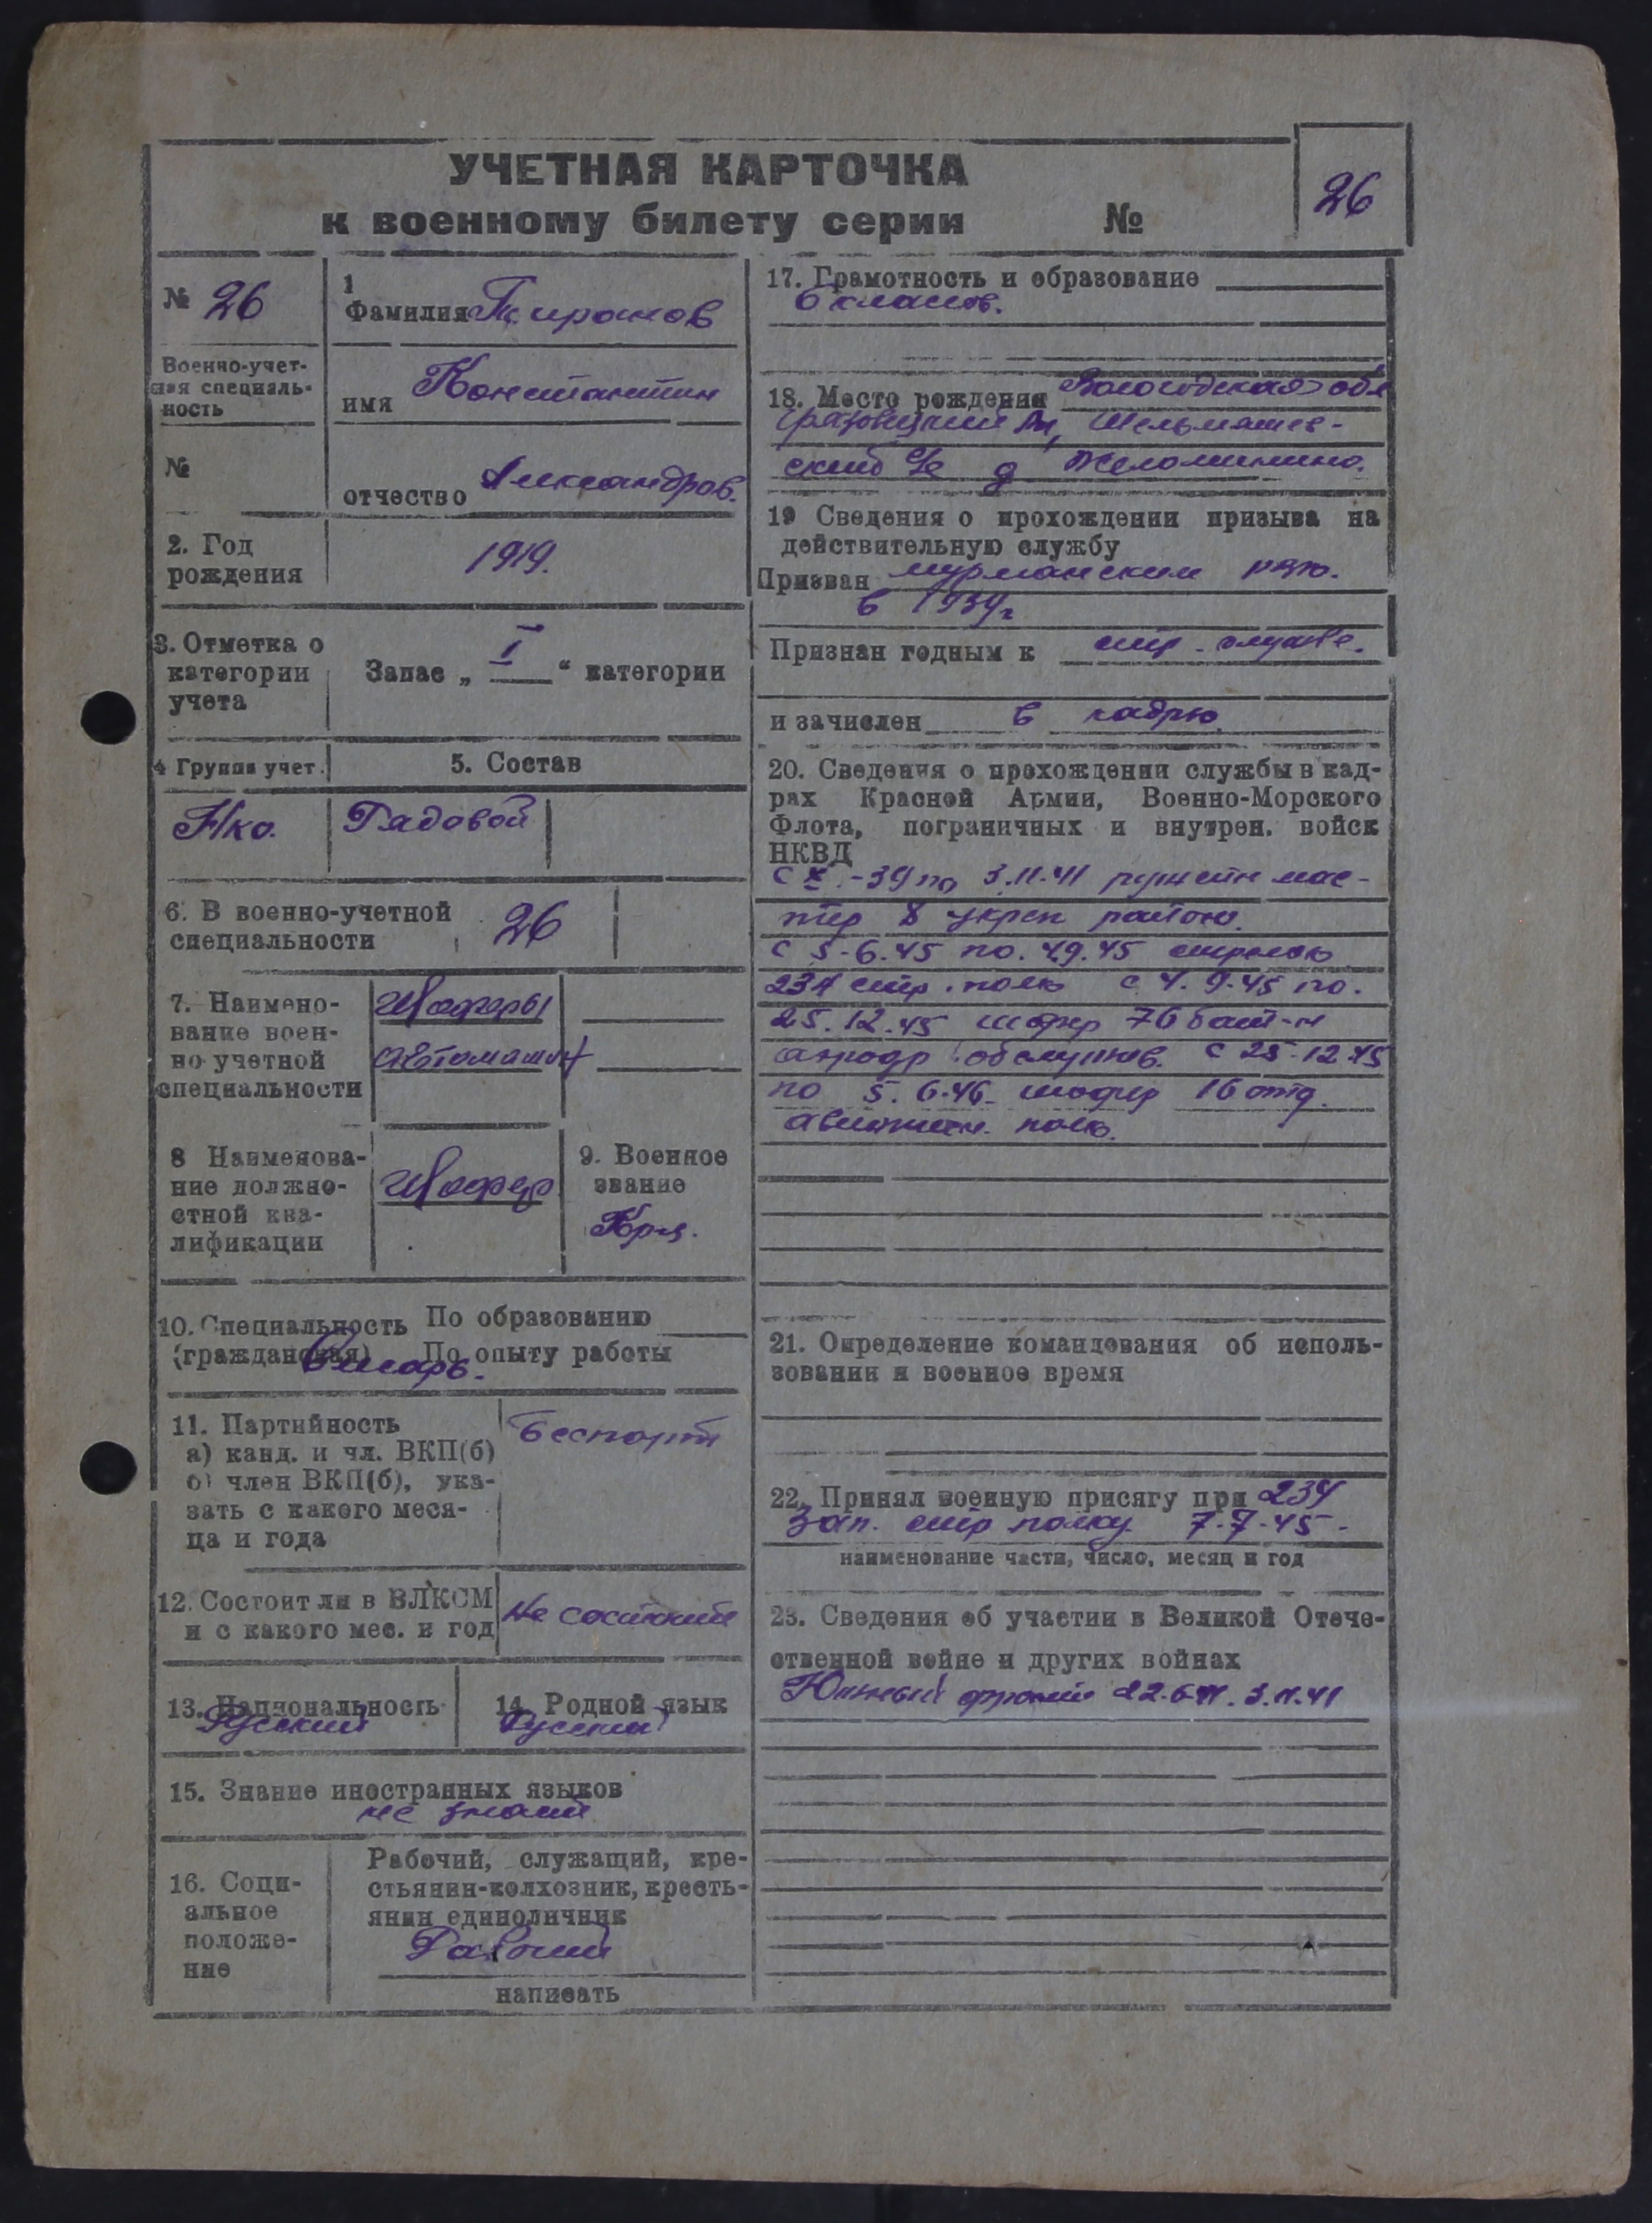 УЧЕТНАЯ КАРТОЧКА
к военному билету серии №
26
№ 26
1
Фамилия
Военно-учет-
ная специаль-
ность
имя Константин
№
отчество Александров.
2. Год
рождения
1919.
3. Отметка о
категории
учета
Запас „ I “ категории
4 Группа учет.
5. Состав
Рядовой
6. В военно-учетной
специальности
26
7. Наимено-
вание воен-
но-учетной
специальности
Шоферы
автомашин
8 Наименова-
ние должно-
стной ква-
лификации
Шофер
9. Военное
звание
Кр-ц.
10. Специальность По образованию
(гражданская) По опыту работы
Слесарь.
11. Партийность
а) канд. и чл. ВКП(б)
б) член ВКП(б), ука-
зать с какого меся-
ца и года
Беспарт
12. Состоит ли в ВЛКСМ
и с какого мес. и год
Не состоит
13. Национальность
Русский
14. Родной язык
Русский
15. Знание иностранных языков
не знает
16. Соци-
альное
положе-
ние
Рабочий, служащий, кре-
стьянин-колхозник, кресть-
янин единоличник
Рабочий
написать
17. Грамотность и образование
6 классов.
18. Место рождения Вологодская обл
скиб с/с д
19 Сведения о прохождении призыва на
действительную службу
Призван мурманским рвк.
в 1939г
Признан годным к стр. службе.
и зачислен в кадры
20. Сведения о прохождении службы в кад-
рах Красной Армии, Военно-Морского
Флота, пограничных и внутрен. войск
НКВД
с X -39 по 3.11.41 ружейн мас-
тер 8 укреп района.
с 5-6.45 по 4.9.45 стрелок
234 стр. полк с 4.9.45 по.
25.12.45 шофер 76 бат-н
аэродр обслужив. с 25.12.45
по 5.6.46 шофер 16 отд.
авиацион. полк.
21. Определение командования об исполь-
зовании в военное время
22. Принял военную присягу при 234
Зап. стр полку 7.7.45.
наименование части, число, месяц и год
23. Сведения об участии в Великой Отече-
ственной войне и других войнах
Южный фронт 22.6.41. 3.11.41